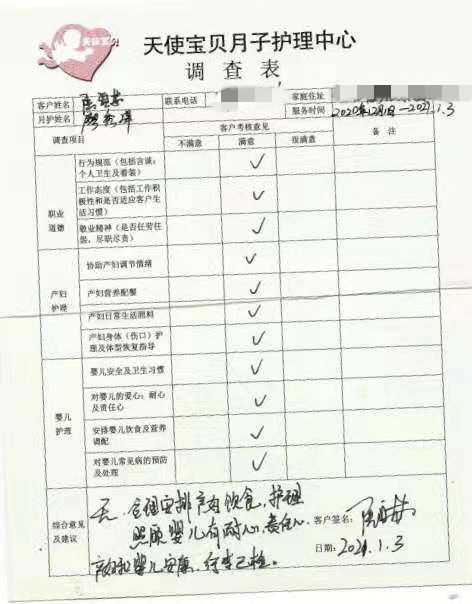 天使宝贝
天使宝贝月子护理中心
调查表
客户姓名 联系电话 家庭住址
月护姓名 服务时间 2020年12月1日—2021.1.3
调查项目 客户考核意见 备注
不满意 满意 很满意
职业道德
行为规范(包括言谈;个人卫生及着装) ✓
工作态度(包括工作积极性和是否适应客户生活习惯) ✓
敬业精神(是否任劳任怨,尽职尽责) ✓
产妇护理
协助产妇调节情绪 ✓
产妇营养配餐 ✓
产妇日常生活照料 ✓
产妇身体(伤口)护理及体型恢复指导 ✓
婴儿护理
婴儿安全及卫生习惯 ✓
对婴儿的爱心;耐心及责任心 ✓
安排婴儿饮食及营养调配 ✓
对婴儿常见病的预防及处理 ✓
综合意见及建议
无,合理安排产妇饮食,护理
照顾婴儿有耐心,责任心
产妇和婴儿安康,行李已检。
客户签名:
日期: 2021.1.3